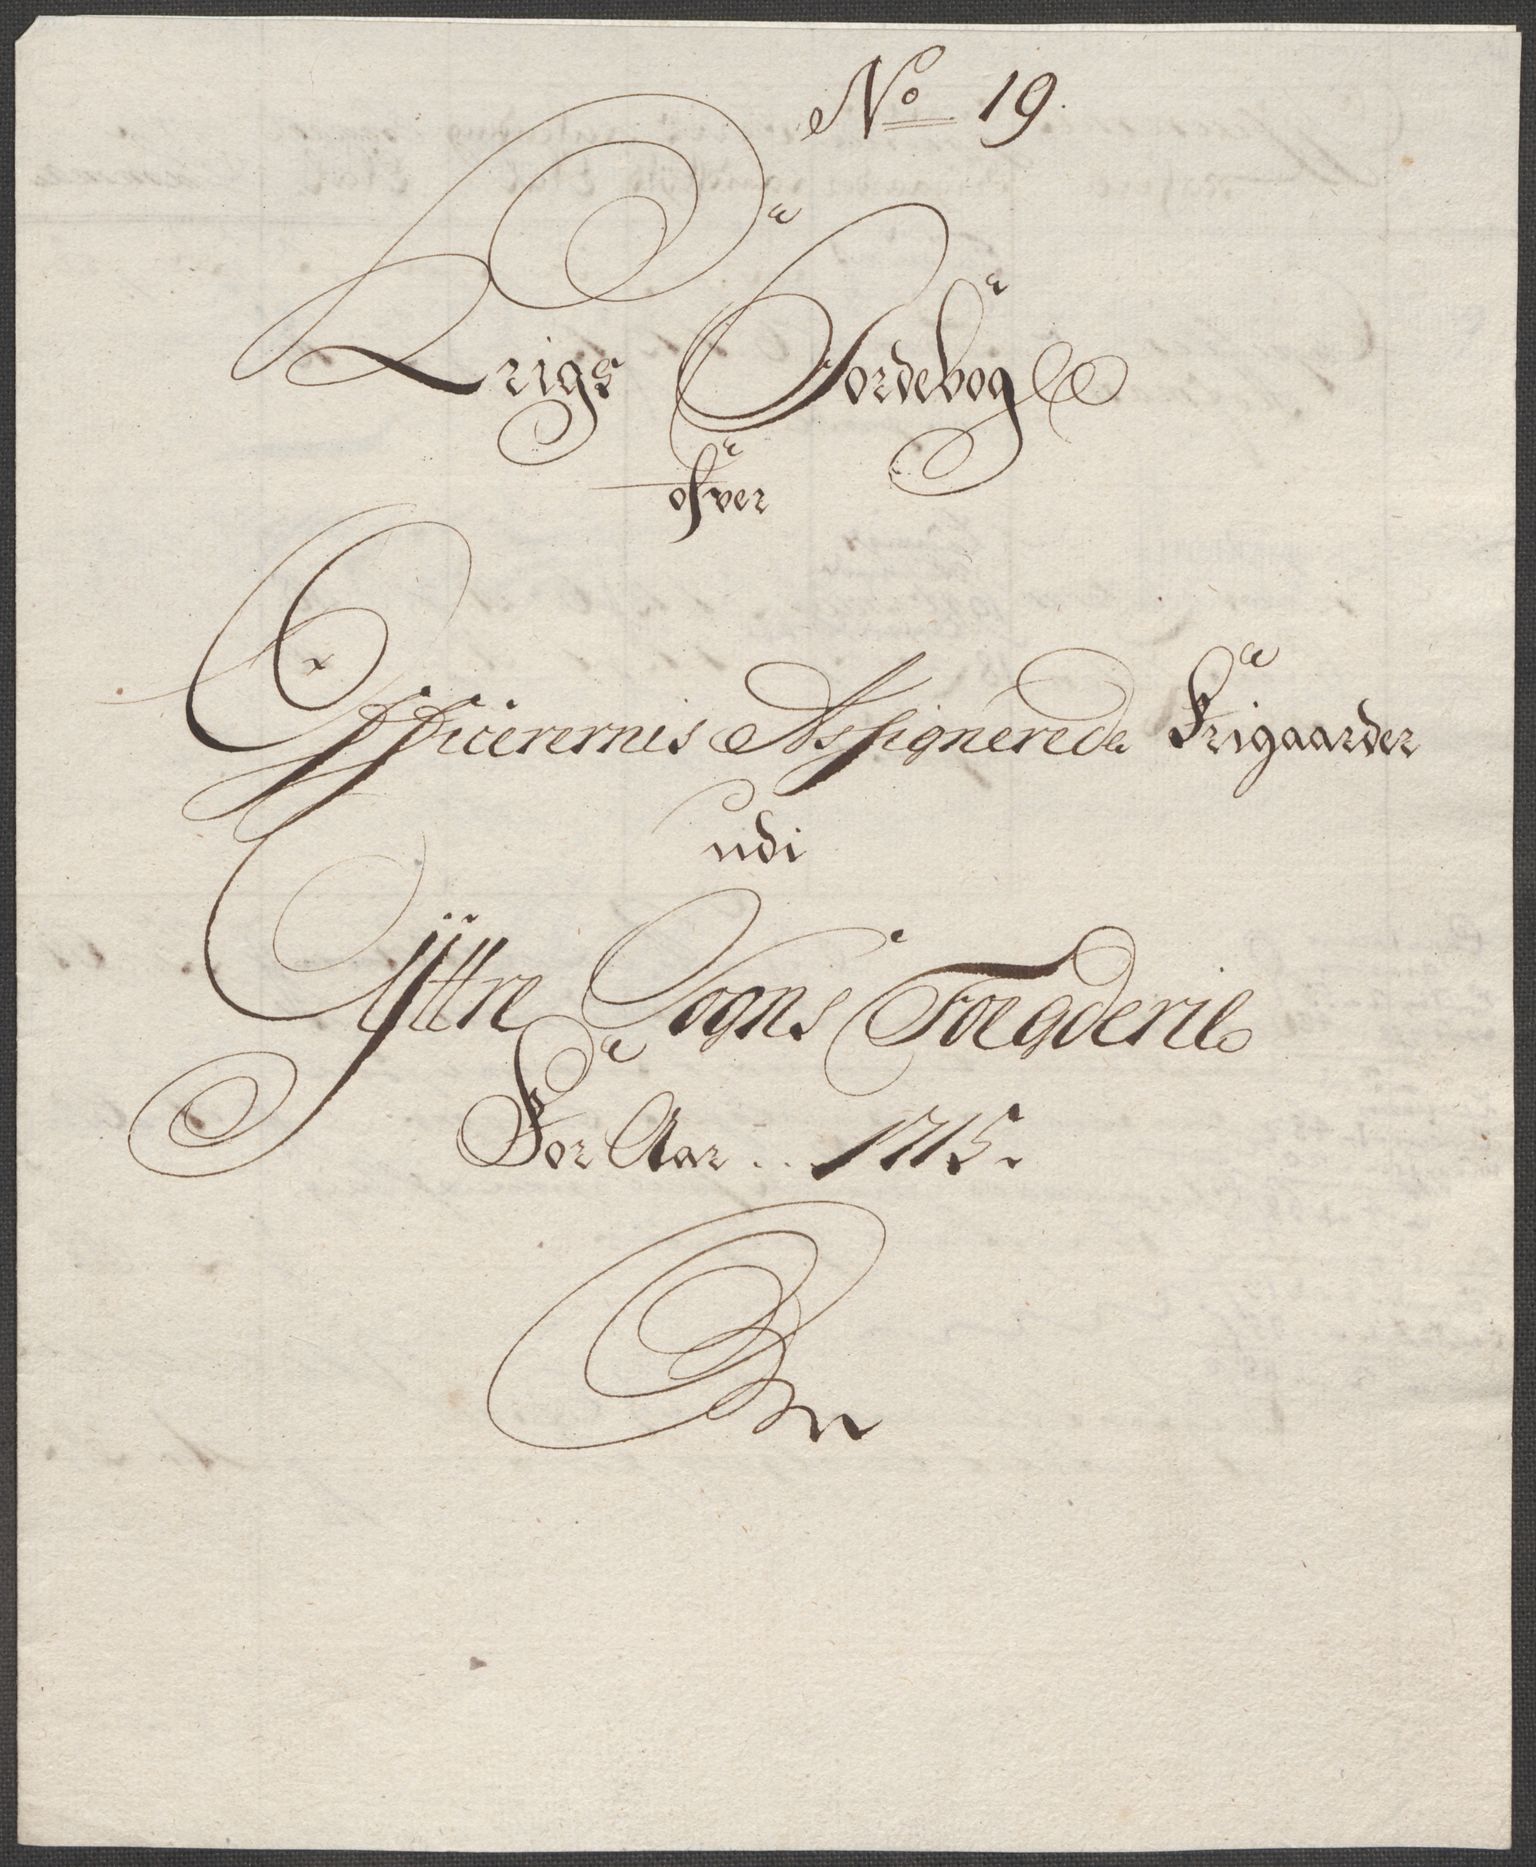 No 19.
Krigs Jordebog
ofver
Officerernis Assignerede Frigaarder
udi
Yttre Sogns Foegderie
For Aar .. 1715.